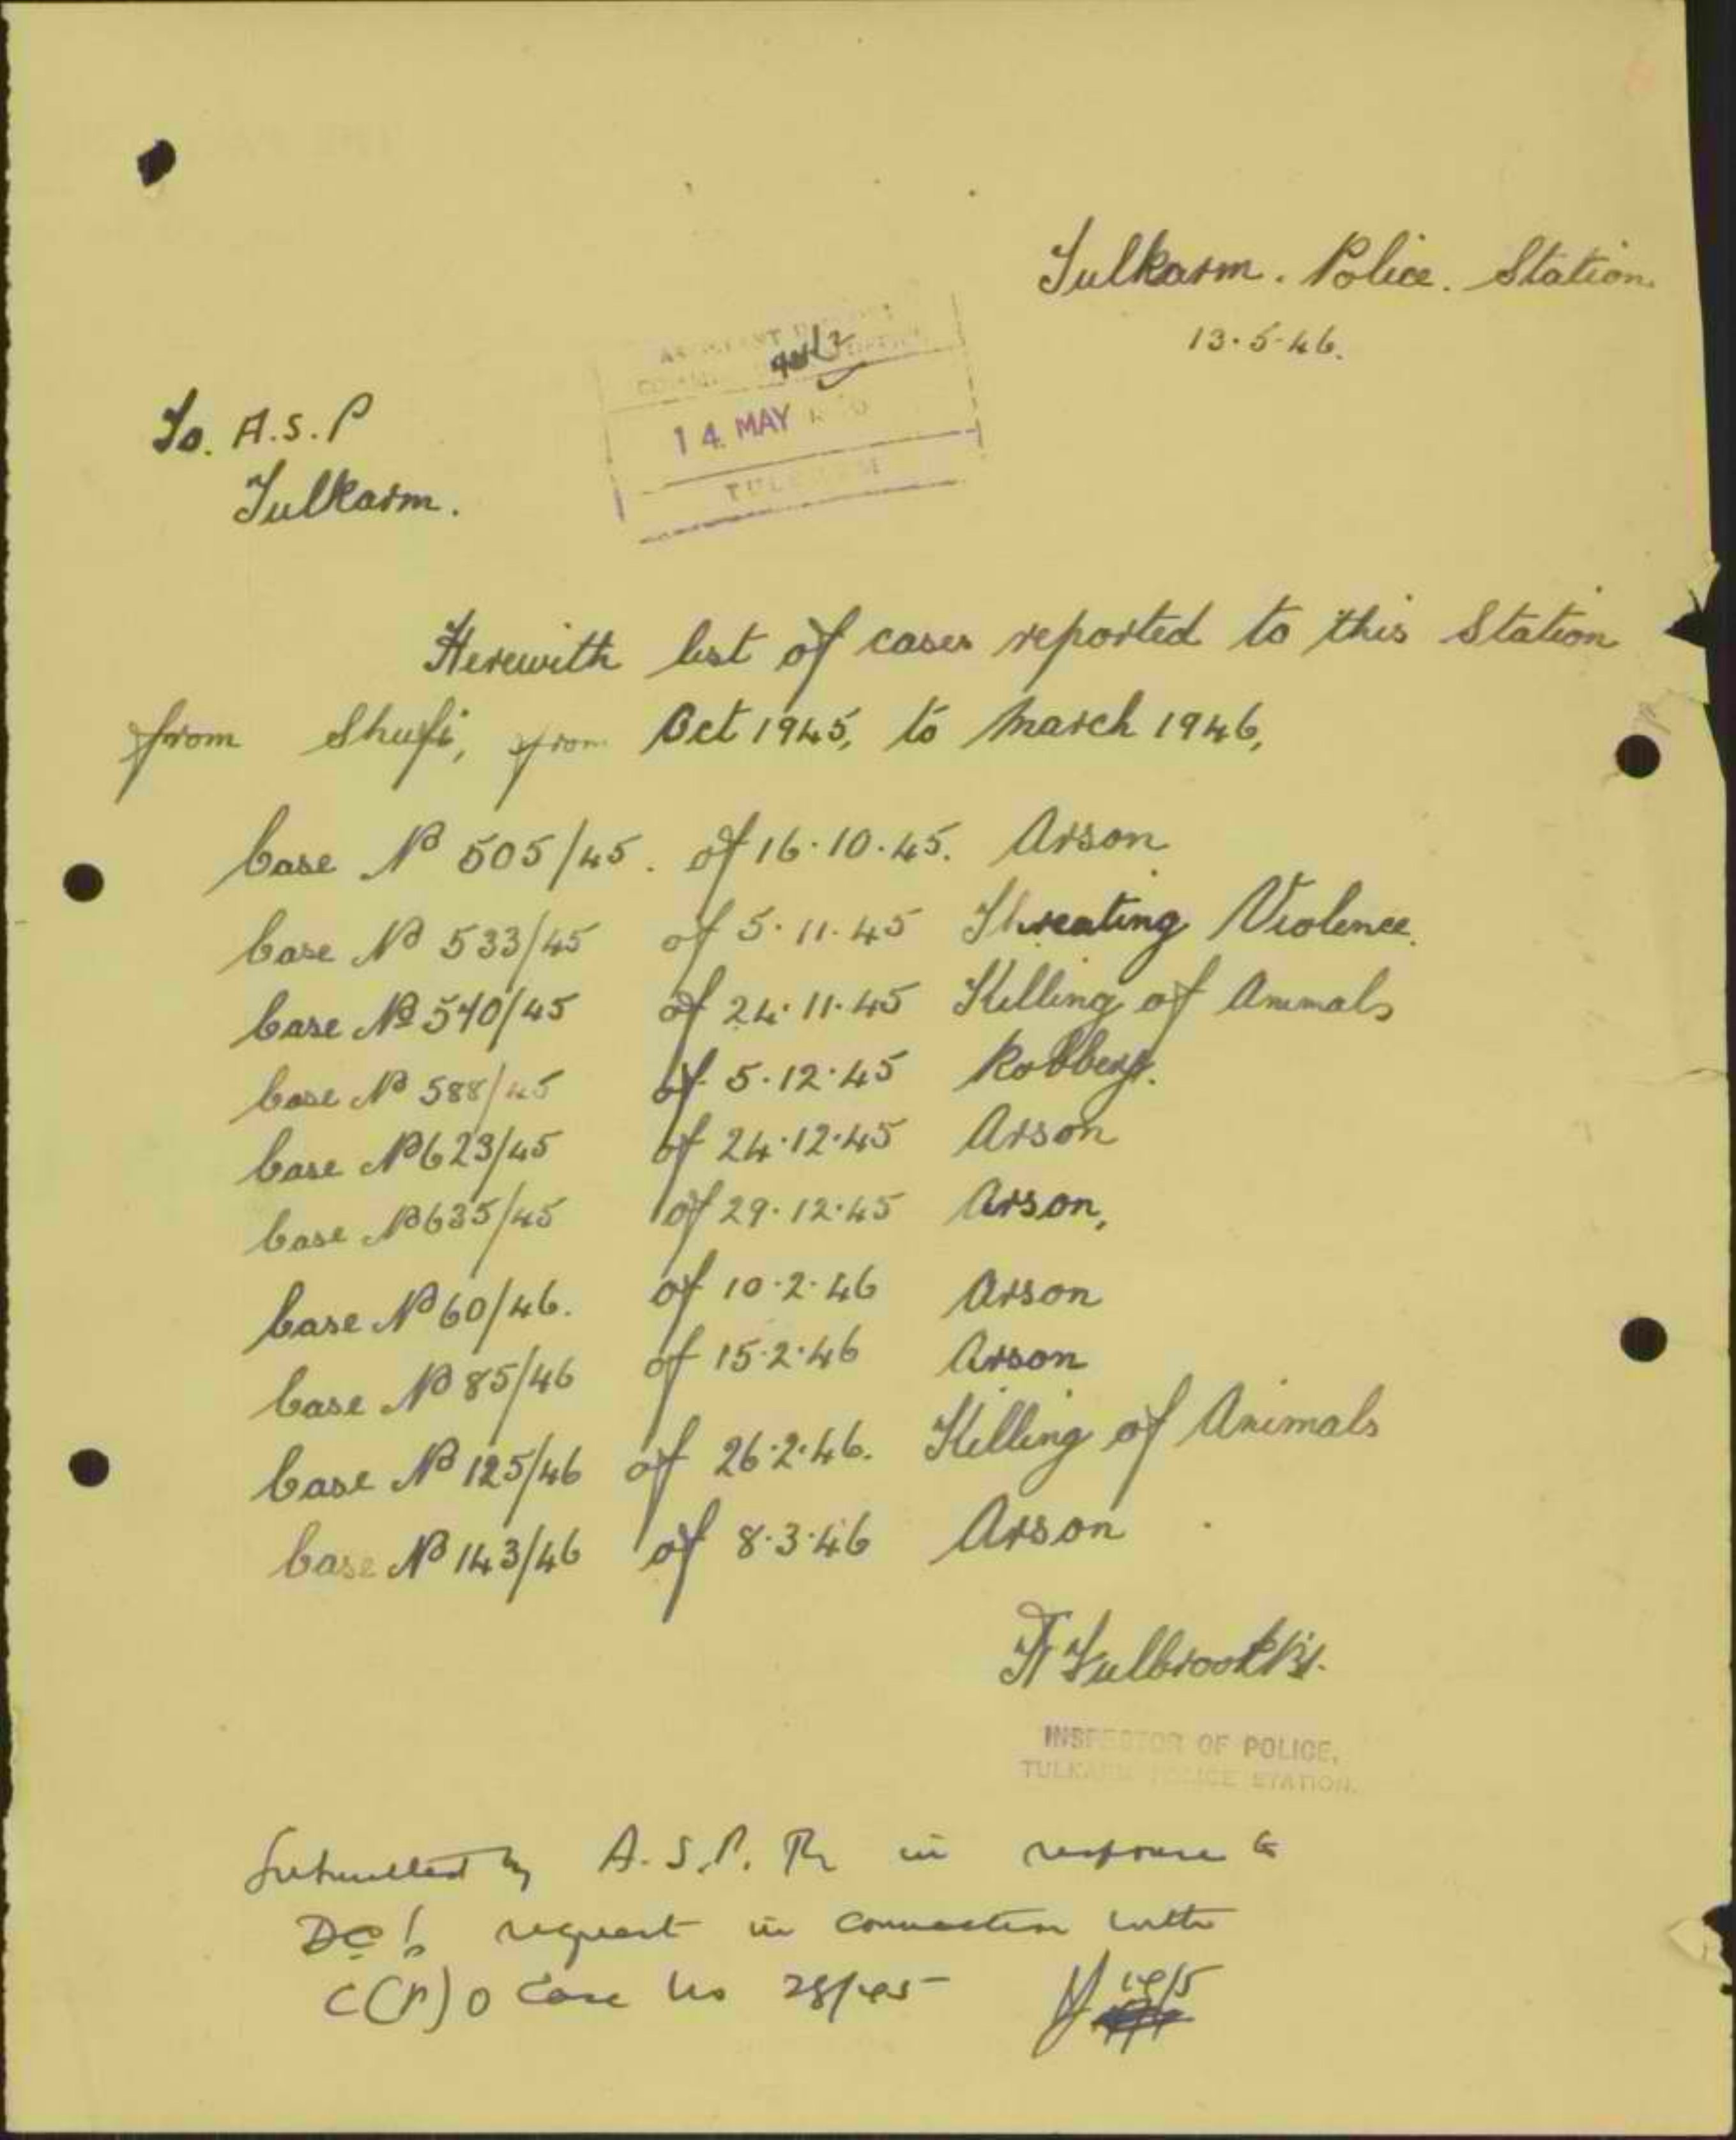 Tulkarm. Police. Station.
13.5.46.
To. A.S.P
Tulkarm.
14 MAY
TULKARM
Herewith list of cases reported to this Station
from Shufi, from Oct 1945, to March 1946,
Case No 505/45. of 16.10.45. Arson
Case No 533/45 of 5.11.45 Threating Violence.
Case No 570/45 of 24.11.45 Killing of Animals
Case No 588/45 of 5.12.45 Robbery.
Case No 623/45 of 24.12.45 Arson
Case No 635/45 of 29.12.45 Arson,
Case No 60/46. of 10.2.46 Arson
Case No 85/46 of 15.2.46 Arson
Case No 125/46 of 26.2.46. Killing of Animals
Case No 143/46 of 8.3.46 Arson
INSPECTOR OF POLICE,
TULKARM POLICE STATION.
Submitted by A.S.P. in response to
DC's request in connection with
C(P)O Case No 28/45